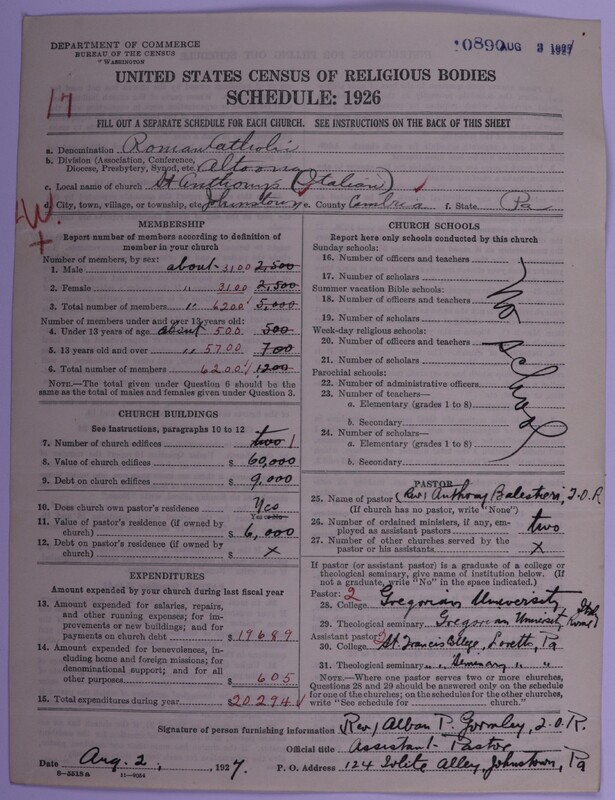 DEPARTMENT OF COMMERCE
BUREAU OF THE CENSUS
WASHINGTON
0890 AUG 3 1927
UNITED STATES CENSUS OF RELIGIOUS BODIES
SCHEDULE: 1926
17
FILL OUT A SEPARATE SCHEDULE FOR EACH CHURCH. SEE INSTRUCTIONS ON THE BACK OF THIS SHEET
a. Denomination Roman Catholic
b. Division (Association, Conference, Diocese, Presbytery, Synod, etc. Altoona
c. Local name of church St Anthonys (Italian)
d. City, town, village, or township, etc. Johnstown e. County Cambria f. State Pa
W.
MEMBERSHIP
Report number of members according to definition of
member in your church
Number of members, by sex:
1. Male about 3100 2,500
2. Female " 3100 2,500
3. Total number of members " 6200 5,000
Number of members under and over 13 years old:
4. Under 13 years of age about 500 500
5. 13 years old and over " 5700 700
6. Total number of members 6200 1200
NOTE.—The total given under Question 6 should be the
same as the total of males and females given under Question 3.
CHURCH BUILDINGS
See instructions, paragraphs 10 to 12
7. Number of church edifices two 1
8. Value of church edifices $ 60,000
9. Debt on church edifices $ 9,000
10. Does church own pastor's residence Yes
Yes or No
11. Value of pastor's residence (if owned by
church) $ 6,000
12. Debt on pastor's residence (if owned by
church) $ x
EXPENDITURES
Amount expended by your church during last fiscal year
13. Amount expended for salaries, repairs,
and other running expenses; for im-
provements or new buildings; and for
payments on church debt $ 19689
14. Amount expended for benevolences, in-
cluding home and foreign missions; for
denominational support; and for all
other purposes $ 605
15. Total expenditures during year $ 20,294
CHURCH SCHOOLS
Report here only schools conducted by this church
Sunday schools:
16. Number of officers and teachers
17. Number of scholars
Summer vacation Bible schools:
18. Number of officers and teachers
19. Number of scholars
Week-day religious schools:
20. Number of officers and teachers
21. Number of scholars
Parochial schools:
22. Number of administrative officers
23. Number of teachers—
a. Elementary (grades 1 to 8)
b. Secondary
24. Number of scholars—
a. Elementary (grades 1 to 8)
b. Secondary
No School
PASTOR
25. Name of pastor (Rev) Anthony Balestieri, T.O.R
(If church has no pastor, write "None")
26. Number of ordained ministers, if any, em-
ployed as assistant pastors two
27. Number of other churches served by the
pastor or his assistants x
If pastor (or assistant pastor) is a graduate of a college or
theological seminary, give name of institution below. (If
not a graduate, write "No" in the space indicated.)
Pastor: 2
28. College Gregorian University,
29. Theological seminary Gregorian University Rome
Assistant pastor:
30. College St Francis College, Loretto, Pa
31. Theological seminary " " Seminary " "
NOTE.—Where one pastor serves two or more churches,
Questions 28 and 29 should be answered only on the schedule
for one of the churches; on the schedules for the other churches,
write "See schedule for church."
Signature of person furnishing information Rev, Alban P. Gormley, T.O.R.
Official title Assistant Pastor
Date Aug. 2, 1927. P. O. Address 124 Alley, Johnstown, Pa
8—5518a 11—9024